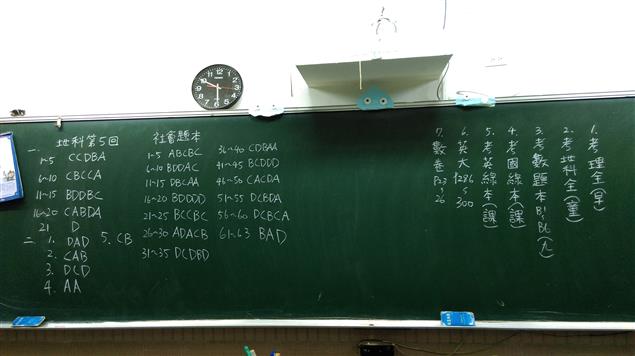 地科第5回
一.
1~5 CCDBA
6~10 CBCCA
11~15 BDDBC
16~20 CABDA
21 D
二. 1. DAD 5. CB
2. CAB
3. DCD
4. AA
社會題本
1-5 ABCBC
6-10 BDDAC
11-15 DBCAA
16~20 BDDDD
21~25 BCCBC
26~30 ADACB
31~35 DCDBD
36~40 CDBAA
41~45 BCDDD
46~50 CACDA
51~55 DCBDA
56~60 DCBCA
61~63 BAD
1. 考理全(早)
2. 考地科全(董)
3. 考數題本B1~B6(九)
4. 考國線本(課)
5. 考英線本(課)
6. 英大1286~300
7. 數卷P23~26